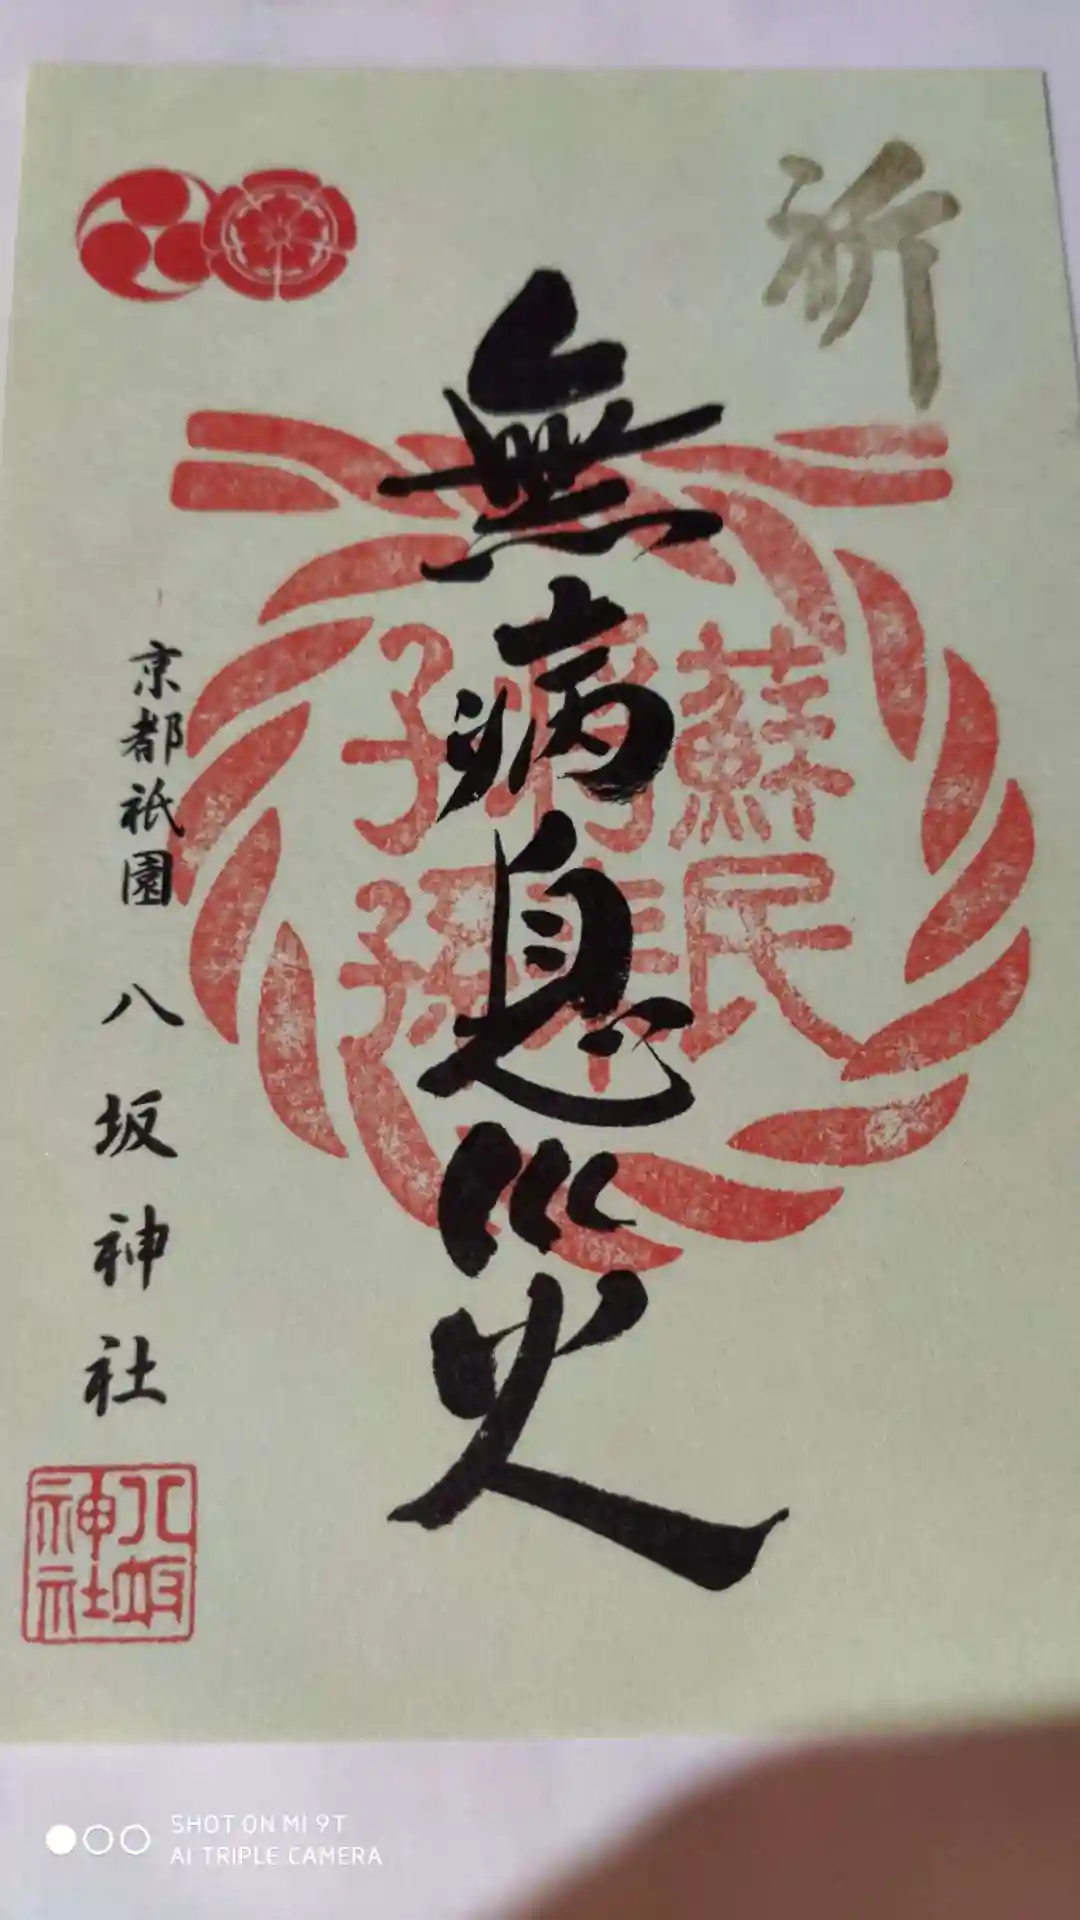 祈
無病息災
蘇民
将来
子孫
京都祇園 八坂神社
八坂
神社
SHOT ON MI 9T
AI TRIPLE CAMERA